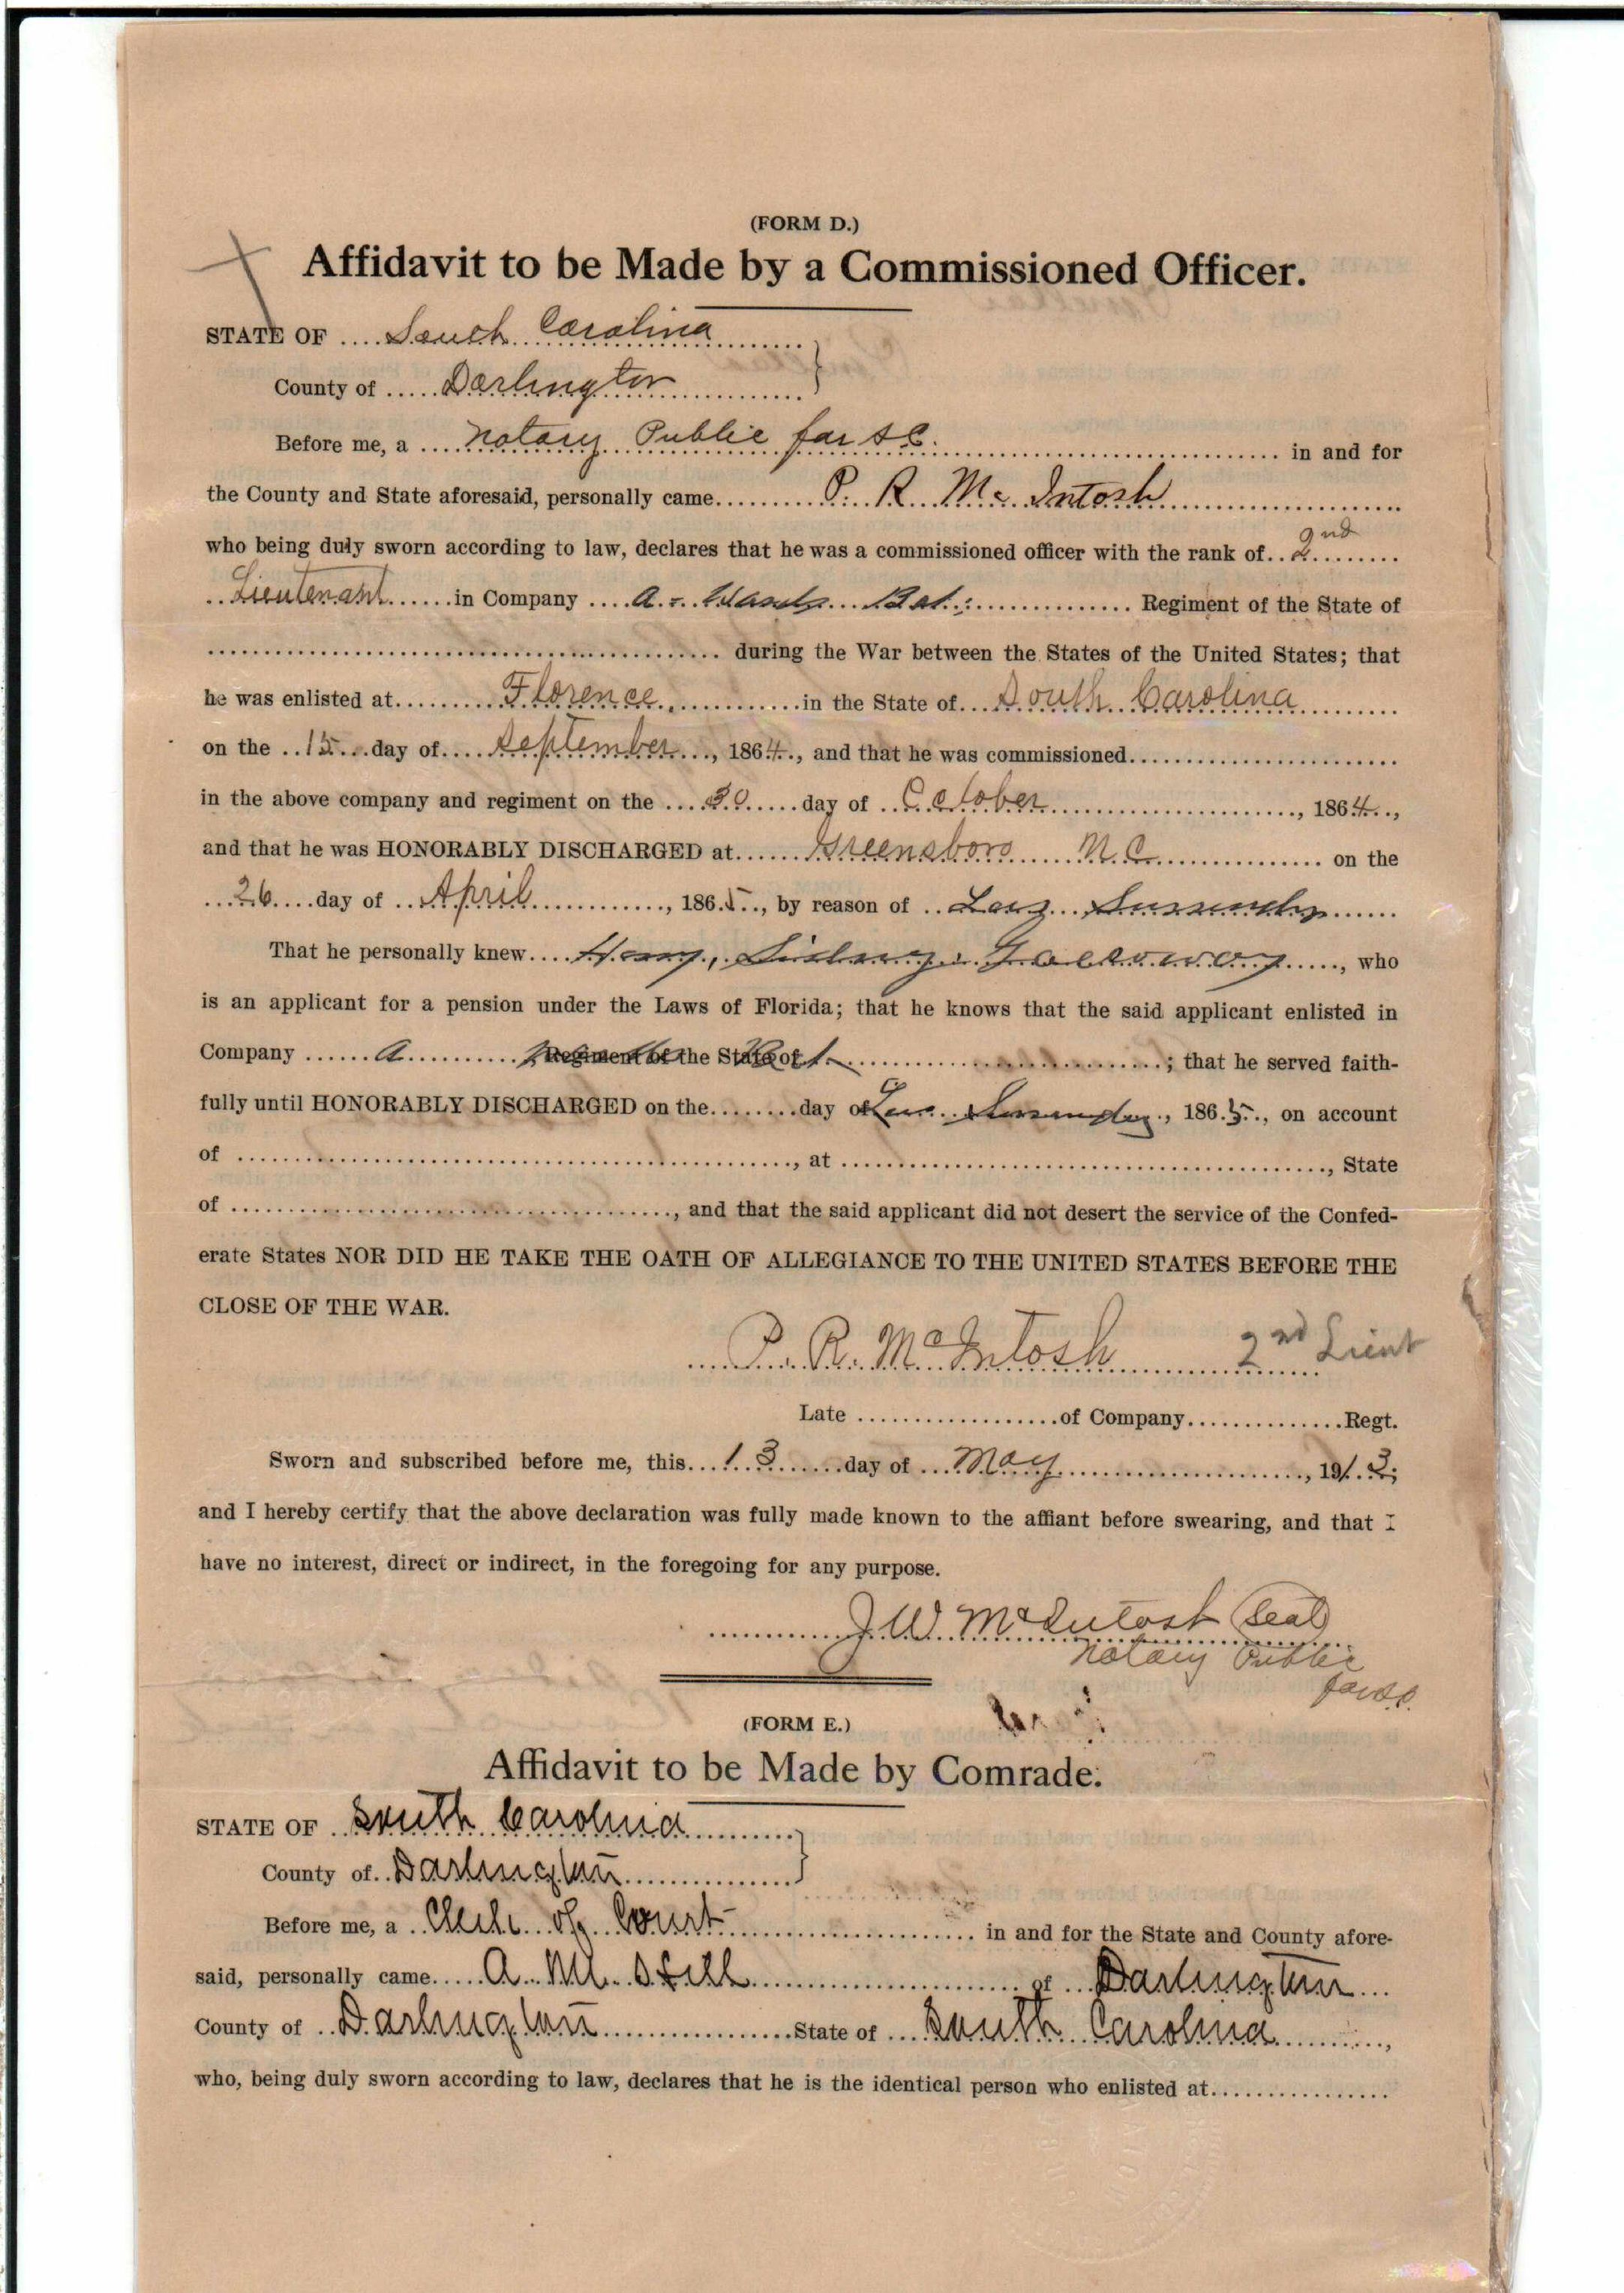 (FORM D.)
Affidavit to be Made by a Commissioned Officer.
STATE OF South Carolina
County of Darlington
Before me, a Notary Public for S.C. in and for
the County and State aforesaid, personally came P. R. McIntosh
who being duly sworn according to law, declares that he was a commissioned officer with the rank of 2nd
Lieutenant in Company A Bat. Regiment of the State of
during the War between the States of the United States; that
he was enlisted at Florence in the State of South Carolina
on the 15 day of September, 1864, and that he was commissioned
in the above company and regiment on the 30 day of October, 1864,
and that he was HONORABLY DISCHARGED at Greensboro N.C. on the
26 day of April, 1865, by reason of
That he personally knew Sidney Galloway, who
is an applicant for a pension under the Laws of Florida; that he knows that the said applicant enlisted in
Company A Regiment of the State of ; that he served faith-
fully until HONORABLY DISCHARGED on the day of 1865, on account
of , at , State
of , and that the said applicant did not desert the service of the Confed-
erate States NOR DID HE TAKE THE OATH OF ALLEGIANCE TO THE UNITED STATES BEFORE THE
CLOSE OF THE WAR.
P. R. McIntosh 2nd Lieut
Late of Company Regt.
Sworn and subscribed before me, this 13 day of May, 1913;
and I hereby certify that the above declaration was fully made known to the affiant before swearing, and that I
have no interest, direct or indirect, in the foregoing for any purpose.
J. W. McIntosh (Seal)
Notary Public
for S.C.
(FORM E.)
Affidavit to be Made by Comrade.
STATE OF South Carolina
County of Darlington
Before me, a Clerk of Court in and for the State and County afore-
said, personally came A. M. of Darlington
County of Darlington State of South Carolina,
who, being duly sworn according to law, declares that he is the identical person who enlisted at